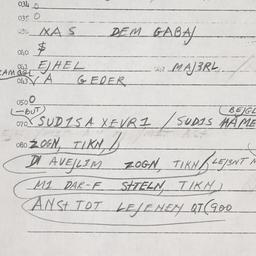 034 0
035 0
NAS DEM GABAJ
$
EJHEL MAJ3RL
043 V A GEDER
050 0
(-BUT) (BEJGL
070 SUDISA XEVRI / SUDIS HAME
080 ZOGN, TIKN,/
DI AVEJLIM ZOGN, TIKN/ LEJENT
MI DAR-F SHTELN, TIKN,
ANSHTOT LEJENEN QT(900